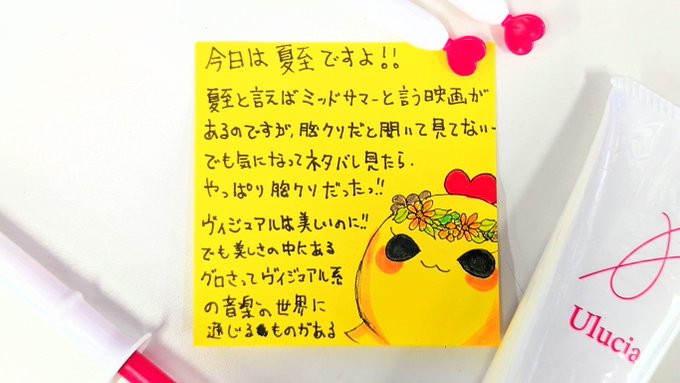 今日は夏至ですよ!!
夏至と言えばミッドサマーと言う映画が
あるのですが、胸クソだと聞いて見てない~
でも気になってネタバレ見たら、
やっぱり胸クソだったっ!!
ヴィジュアルは美しいのに!!
でも美しさの中にある
グロさってヴィジュアル系
の音楽の世界に
通じるものがある
Ulucia